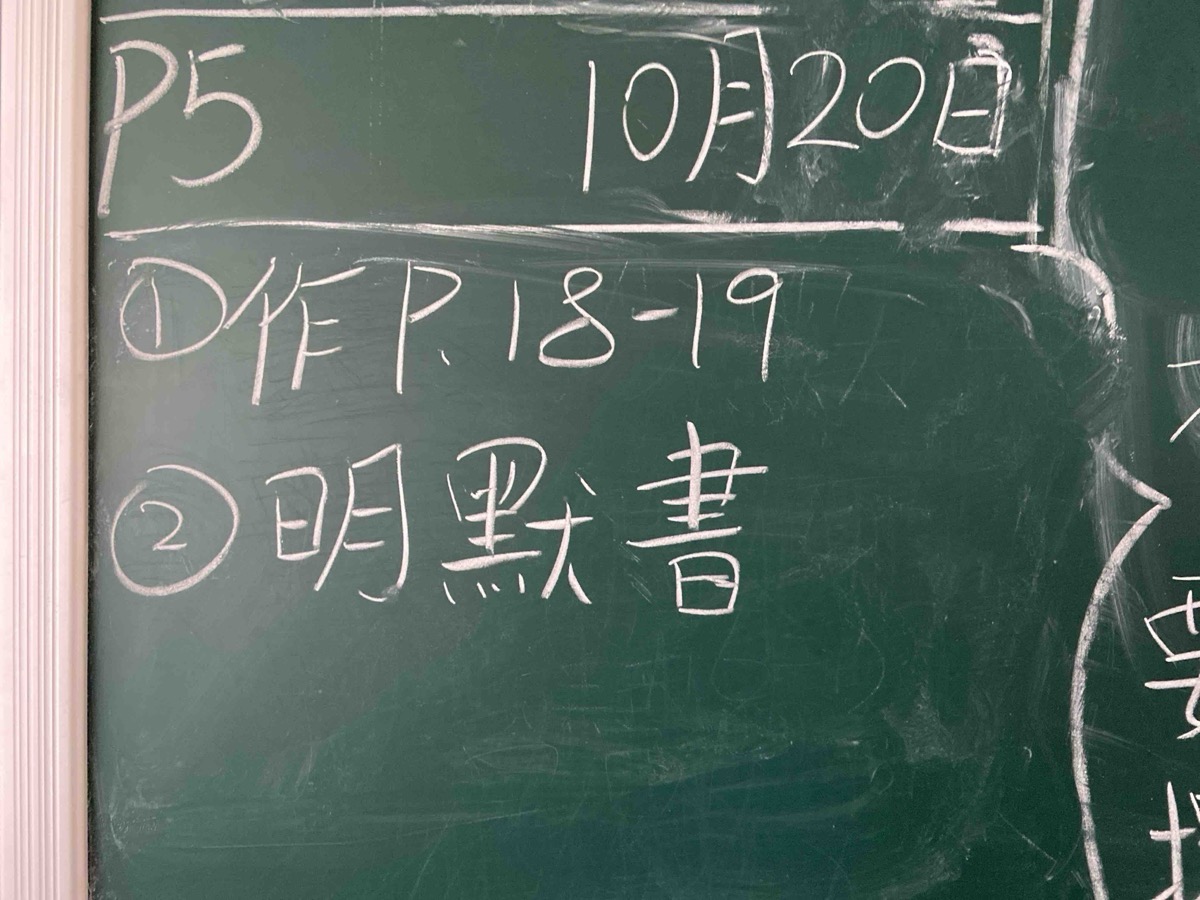 P5 10月20日
①作P.18-19
②明默書